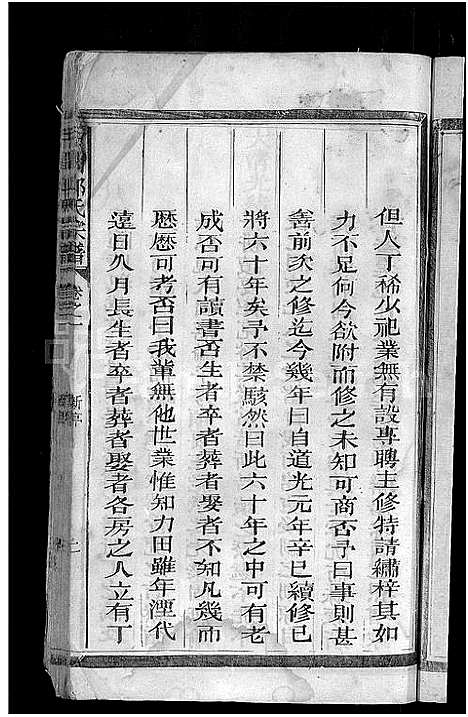 但人丁稀少祀業無有設專聘主修特請繡梓其如
力不足何今欲附而修之未知可商否予曰事則甚
善前次之修迄今幾年曰自道光元年辛巳續修已
將六十年矣予不禁駭然曰此六十年之中可有老
成否可有讀書否生者卒者葬者娶者不知凡幾而
歷歷可考否曰我輩無他世業惟知力田雖年湮代
遠日久月長生者卒者葬者娶者各房之人立有丁
氏宗譜
卷之一